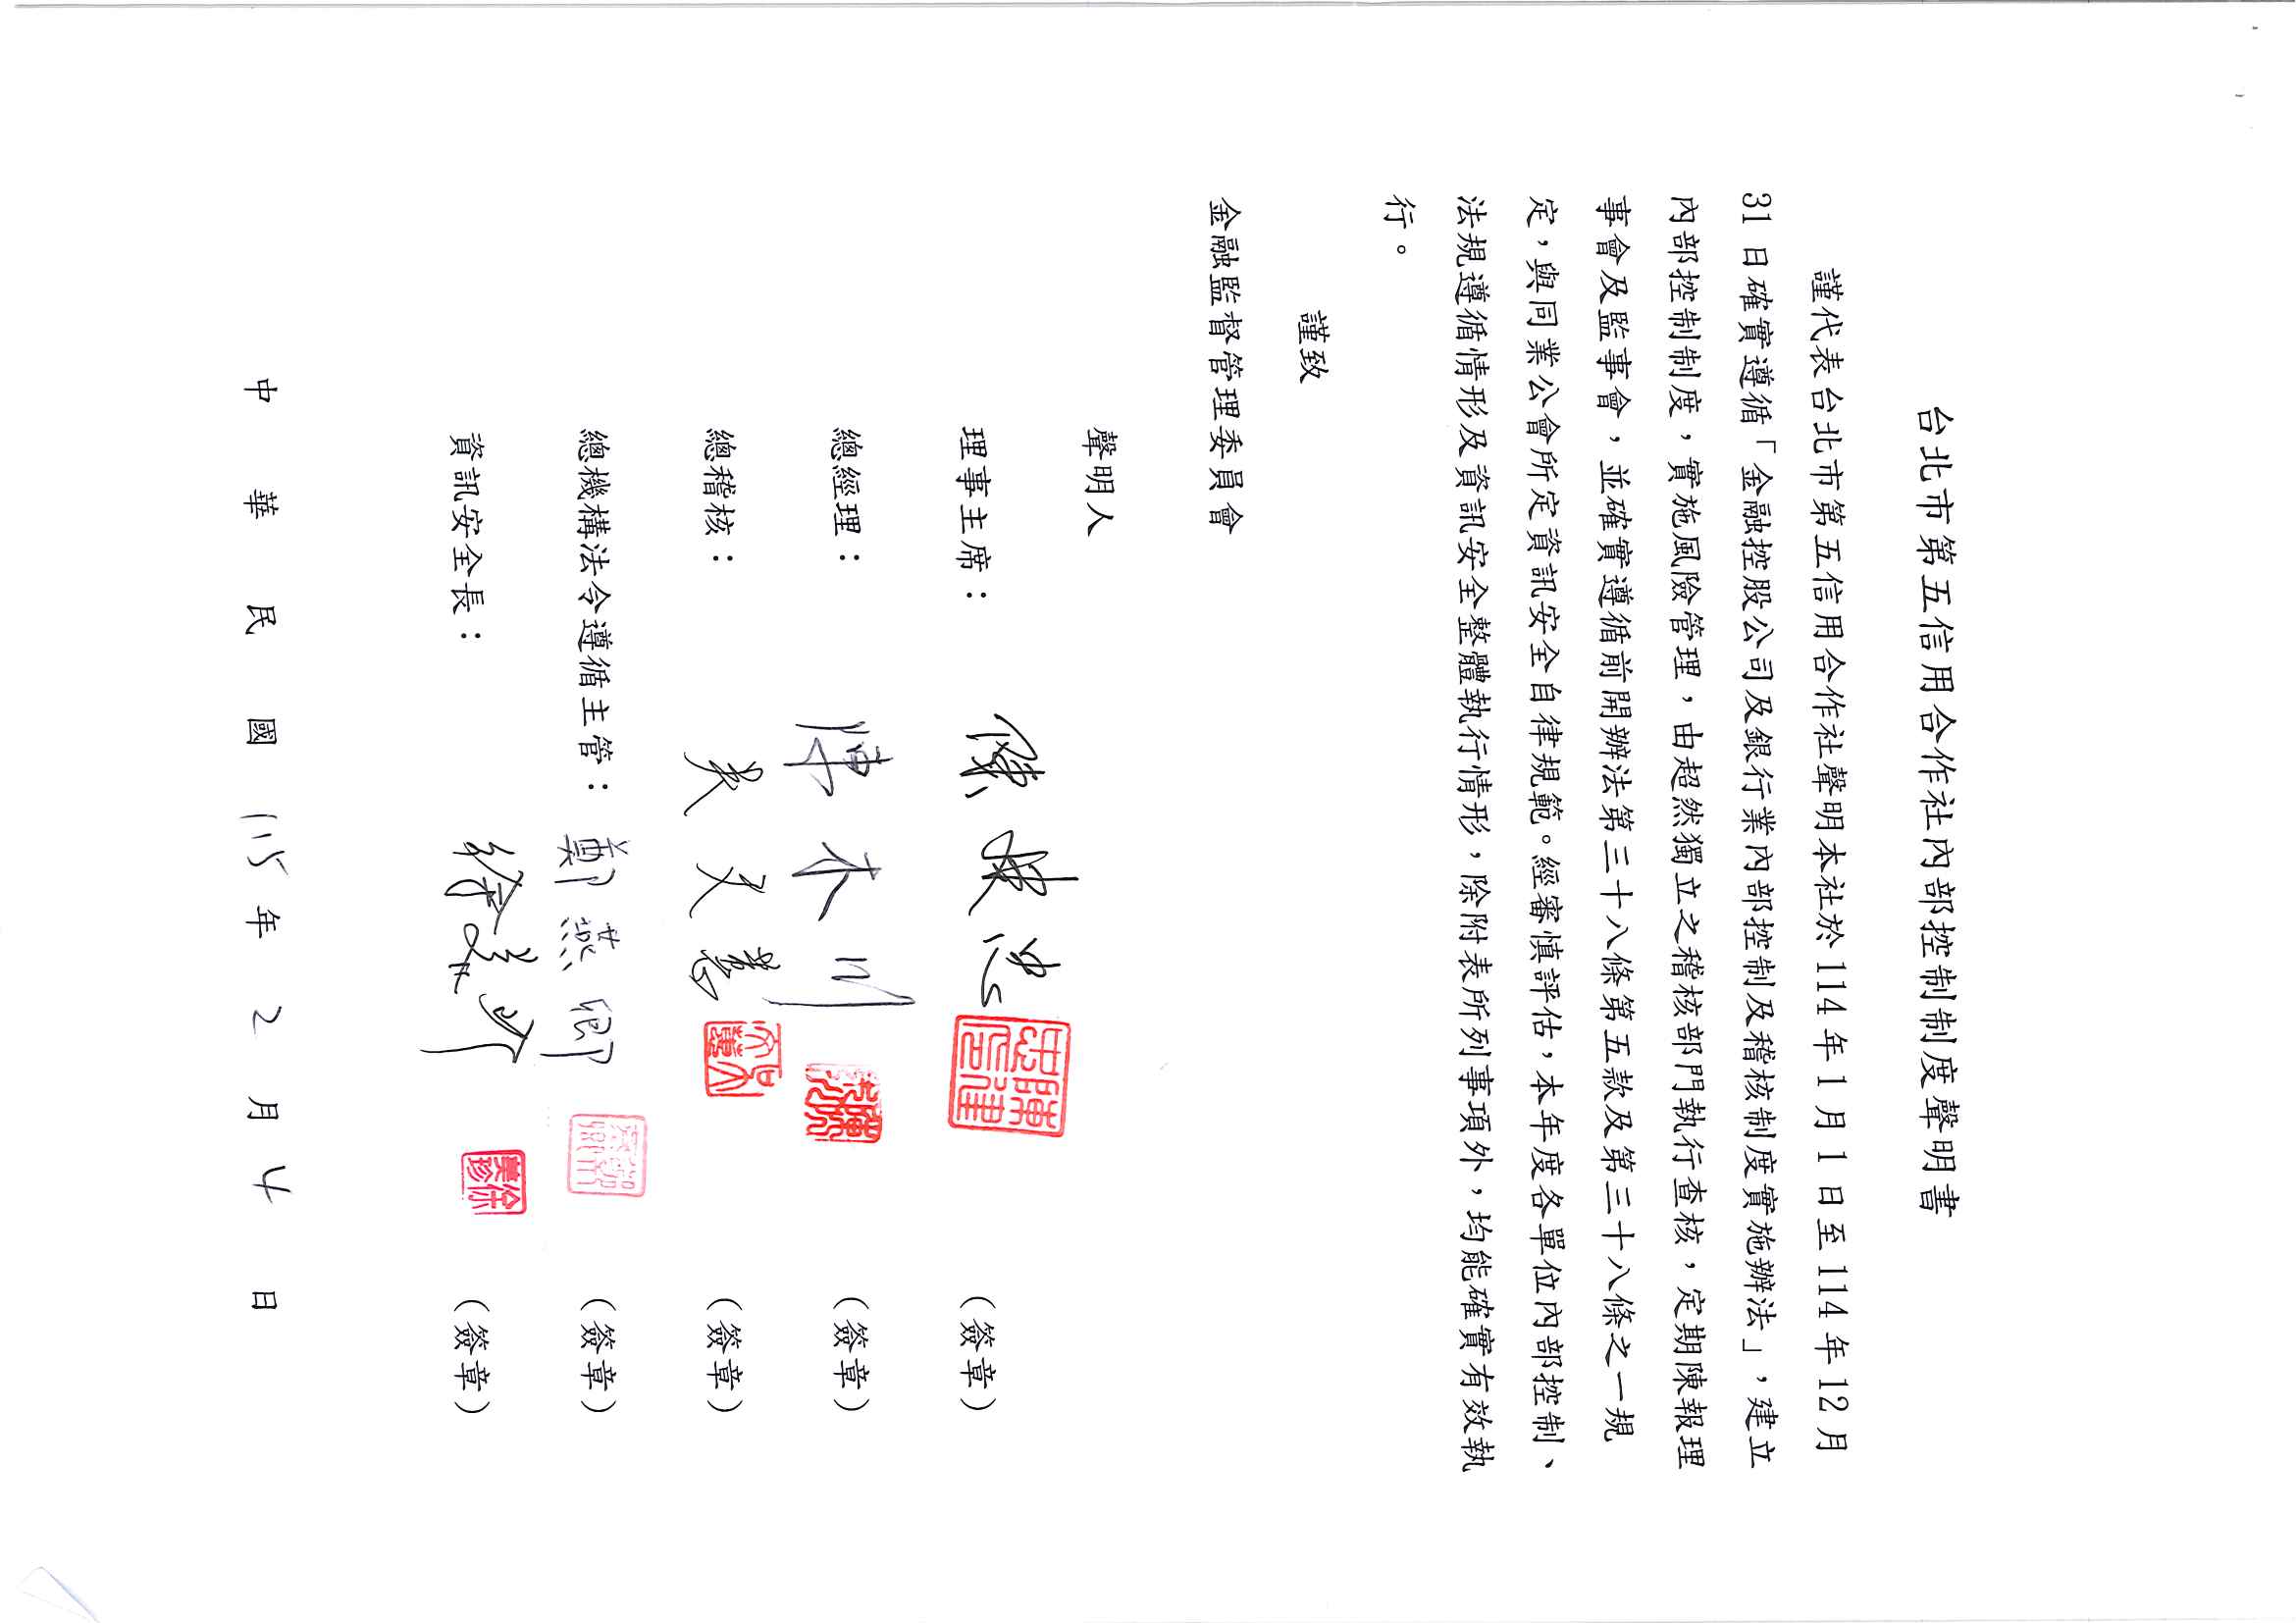 台北市第五信用合作社內部控制制度聲明書
謹代表台北市第五信用合作社聲明本社於 114 年 1 月 1 日至 114 年 12 月
31 日確實遵循「金融控股公司及銀行業內部控制及稽核制度實施辦法」，建立
內部控制制度，實施風險管理，由超然獨立之稽核部門執行查核，定期陳報理
事會及監事會，並確實遵循前開辦法第三十八條第五款及第三十八條之一規
定，與同業公會所定資訊安全自律規範。經審慎評估，本年度各單位內部控制、
法規遵循情形及資訊安全整體執行情形，除附表所列事項外，均能確實有效執
行。
謹致
金融監督管理委員會
聲明人
理事主席： （簽章）
總經理： 陳 （簽章）
總稽核： （簽章）
總機構法令遵循主管：鄭燕卿 （簽章）
資訊安全長：徐美珍 徐美珍 （簽章）
中 華 民 國 115 年 2 月 4 日